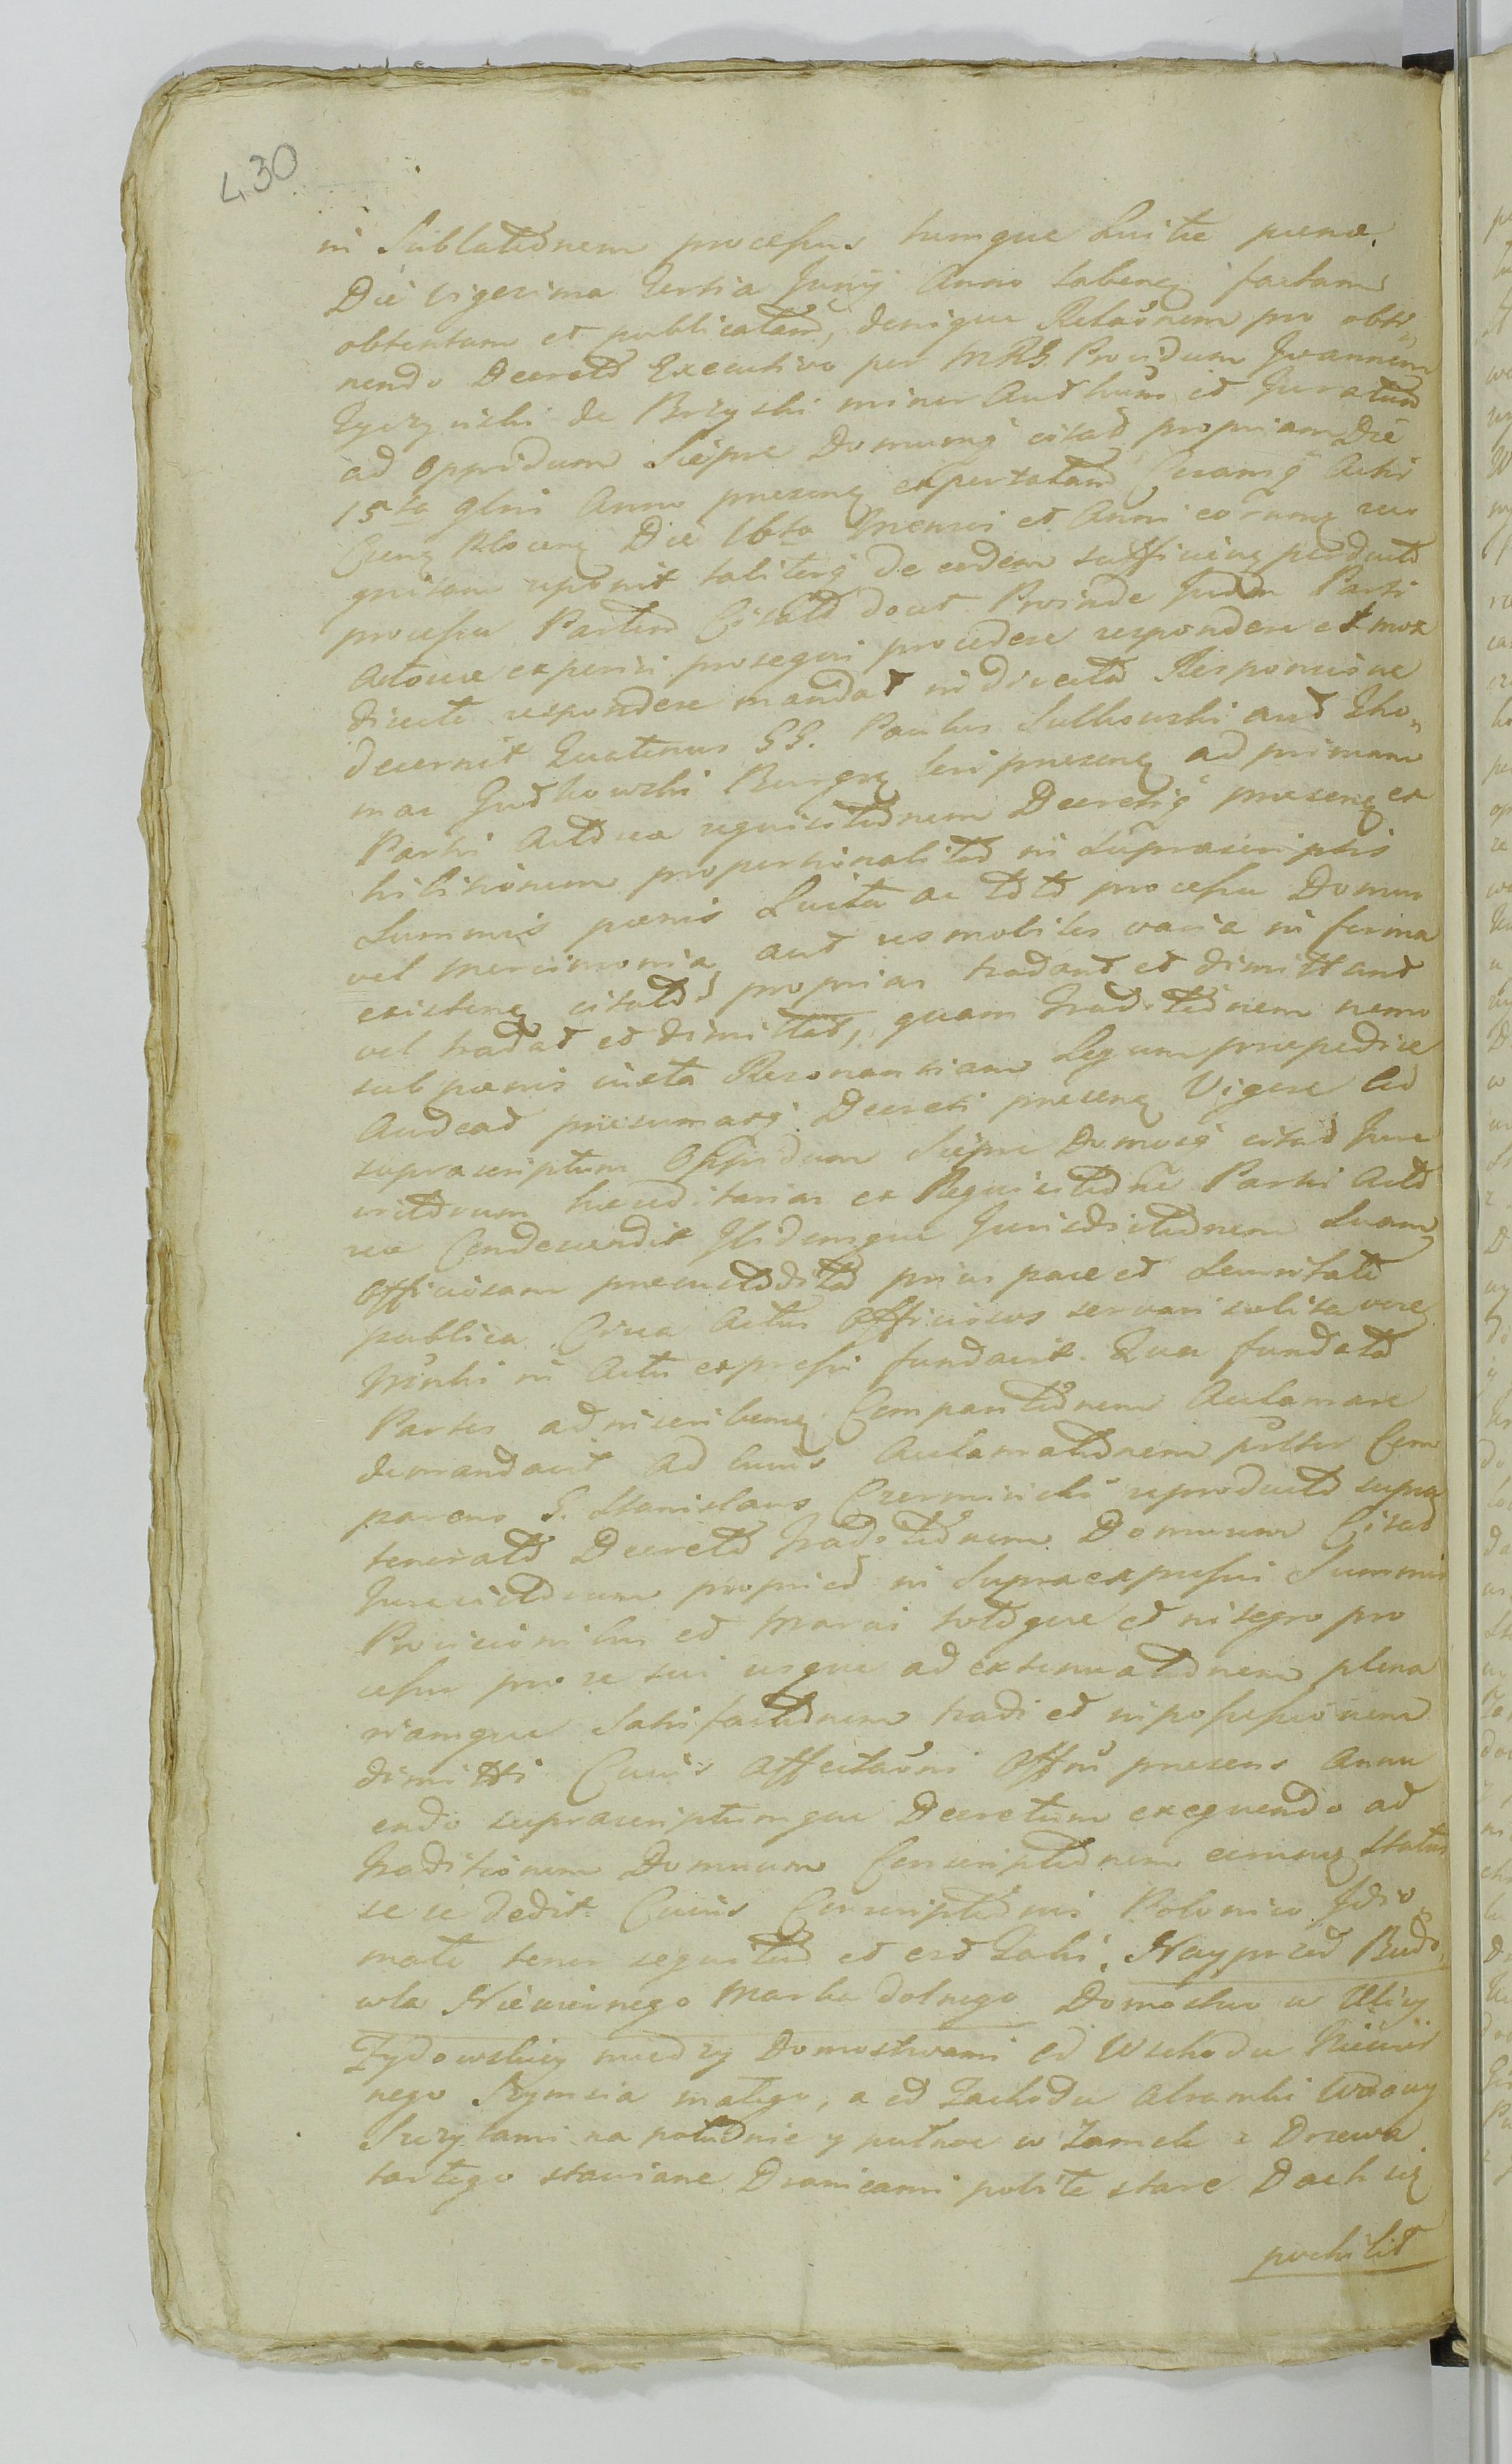 430
in Sublationem processus humque Luitae paena.
Die Vigesima tertia Junij Anno labenę factam
obtentam et publicatam, denique Relaōnem pro obti„
nendo Decreto Executivo per MRG Providum Joannem
de Brzyski miner Authum et Juratum
ad oppidum Siepre Domumq̃ citat propriam Die
15ta 9bris Anno presenę exportatam Coramq̃ Actis
Die 16ta Mensis et Anni eorumę reco
gnitam reponit taliterq̃ de eodem sufficienę perducto
processu Partem Citatō docet Proinde Judm Parti
Actoreae experiri prosequi procedere respondere et mox
directe respondere mandat in directō Responsione
decernit Quatenus GG. Paulus Sulkowski aut Tho„
mas Gutkowski Burgrę seri presenę ad primam
Parti Actoreae requisitionem Decretiq̃ presenę ex
hibitionem proportionaliter in Supraescriptis
Summis paenis Luita ac toto processu Domum
vel mercimonia aut res mobiles varia in forma
existenę citatō proprias tradant et dimittant
vel tradat et dimittat, quam traditionem nemo
sub paenis iuxta Resonantiam Legum praepedire
Audeat presumatq̃. Decreti presenę Vigore ad
suprascriptum Oppidum Siepre Domosq̃ citat Jure
victorum haereditarias ex Requisitione Parti Acto
reae Condescendit Ibidemque Jurisdictionem Suam
officiosam praecustodita prius pace et Securitate
publica Circa Actus Officiosos servari solita
Mtri in Actu expressi fundavit. Qua fundata
Partes ad inscribenę Comparitionem Aclamare
demandavit Ad cuius Aclamationem pr̃ter Com
parens G. Stanislaus Czerminski reproducto supra
tenorato Decreto traditionem Domuum Citat
Jurevictorum propried in Supraexpressi Summis
Provisionibus et totoque et integro pro
cessu pro re sui usque ad extenuationem plena
riamque Satisfactionem tradi et in possessionem
dimitti Cuius Affectaōni Offm̃ presens Annu
endo suprascriptumque Decretum exequendo ad
traditionem Domuum Conscriptionem earumę Status
se se dedit. Cuius Conscriptionis Polonico Jdio„
mate tenor sequitur et est Talis. Nayprzod Budo„
wla Niewiernego Marka dolnego Domostwo w Ulicy
Zydowskiey miedzy Domostwami od Wschodu Niewier
nego Szymsia małego, a od Zachodu Abramki Wdowy
Szczytami na południe y pułnoc w Zamek z Drzewa
tartego stawiane Dranicami pobite stare Dach się
pochilił